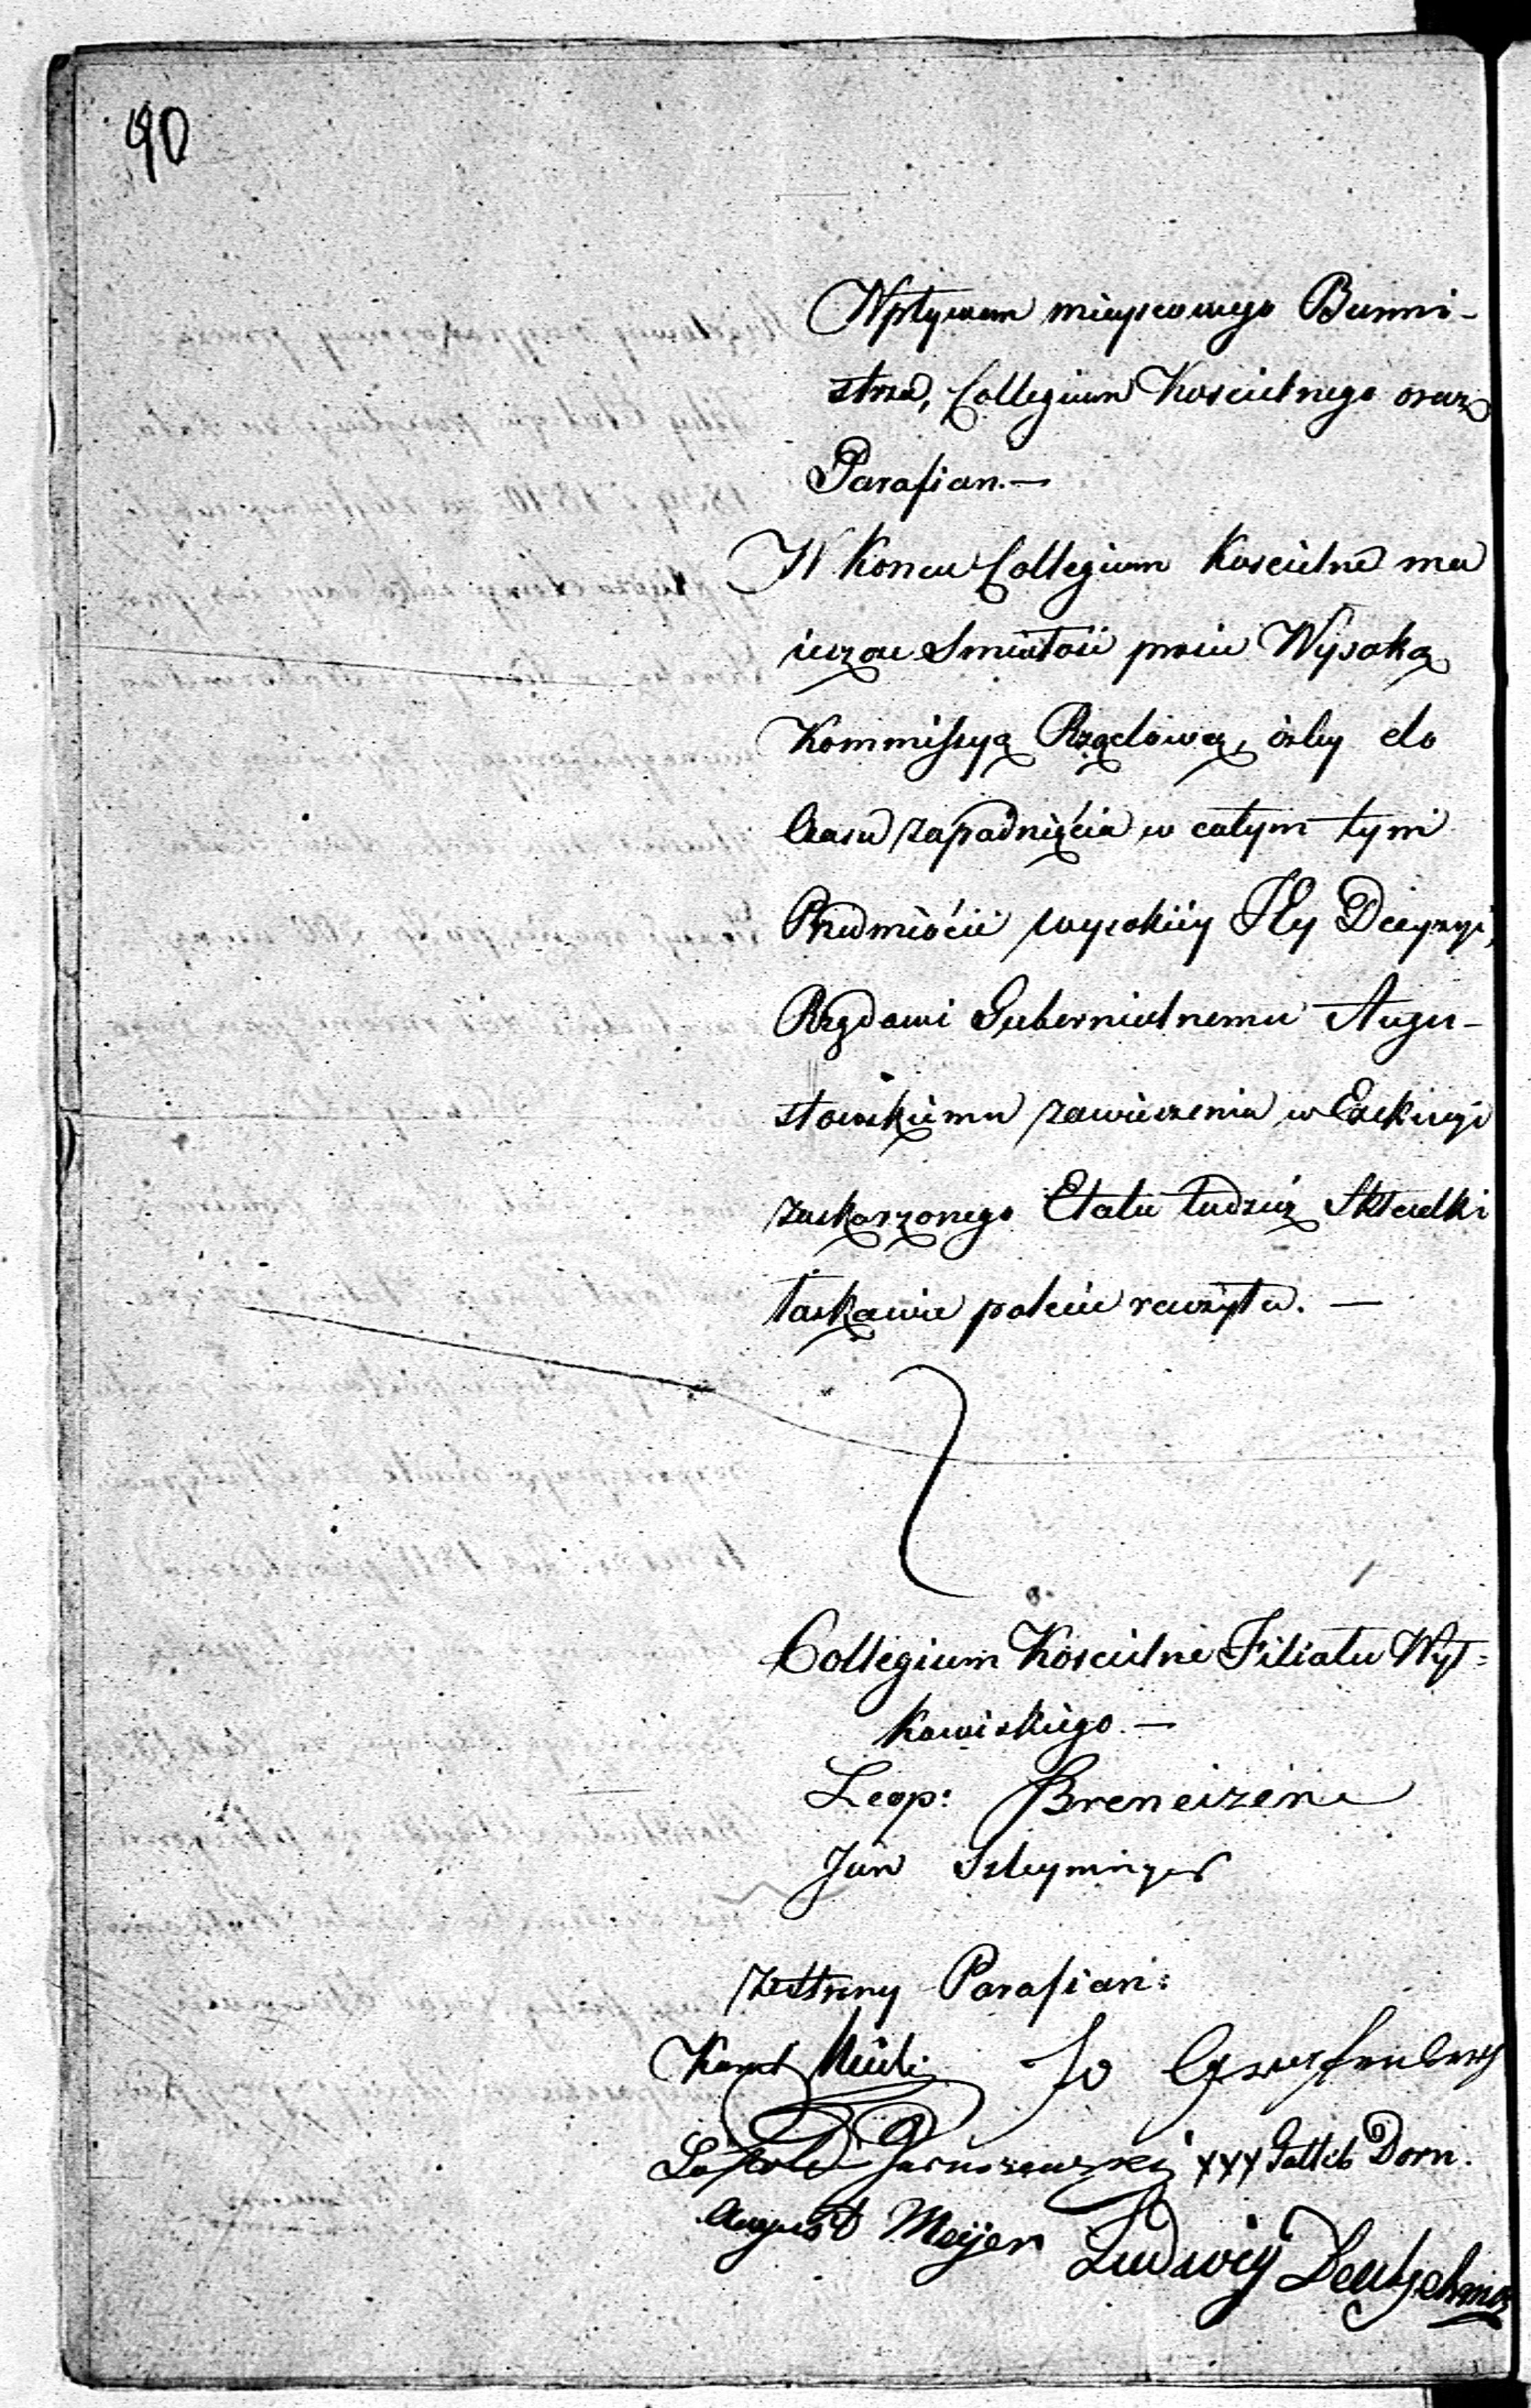 90
Wpływem mieyscowego Burmi-
strza, Collegium Koscielnego oraz
Parafian. —
W Koncu Collegium Koscielne ma
ieszcze Smiałość prosić Wysoką
Kommissyą Rządową, iżby do
Czasu zapadnięcia w całym tym
Przedmiocie wysokiey Jey Decyzyi,
Rządowi Gubernialnemu Augu-
stowskiemu zawieszenia w Exekucyi
zaskarzonego Etatu tudzież Składki
łaskawie polecić raczyła. —
Collegium Koscielne Filiału Wył-
kowiskiego. —
Leop: Breneizen
Jan Szleyminger
ze Strony Parafian:
Karol
Jo
Leopold Januszewski xxx Gottlib Dorn.
August Meijer Ludwig